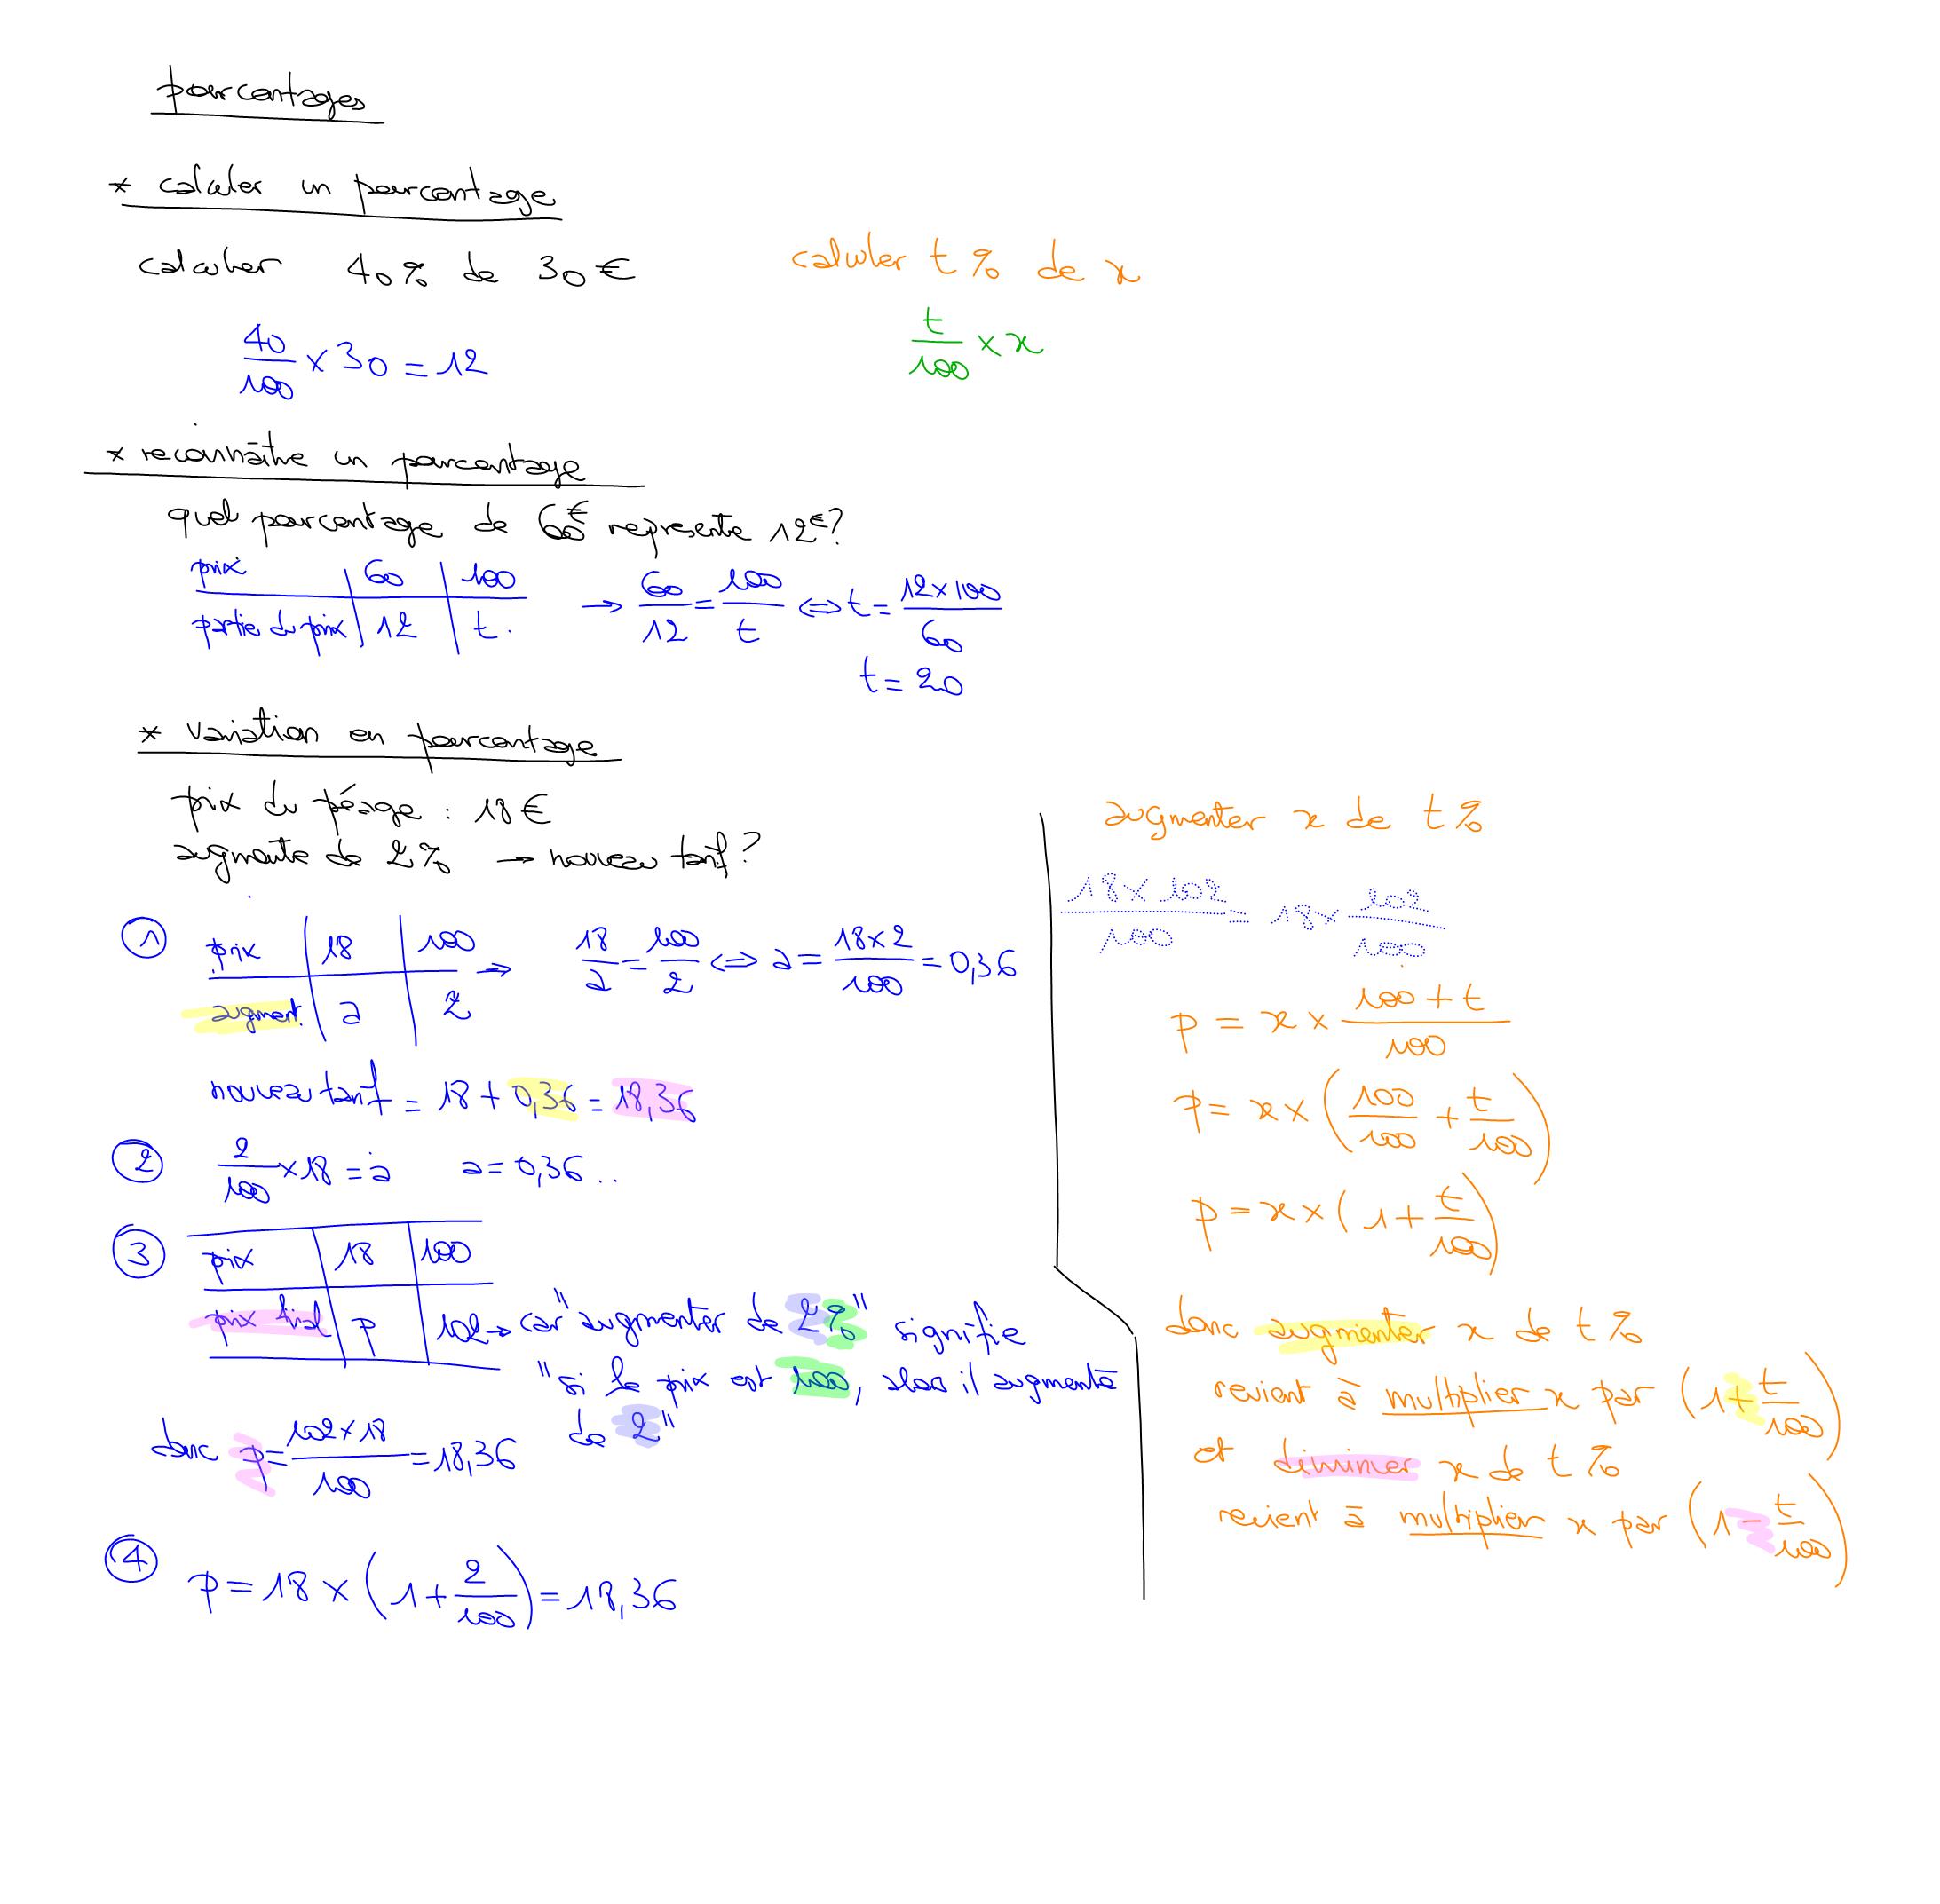 pourcentages
* calculer un pourcentage
calculer 40% de 30€
40/100 × 30 = 12
calculer t% de x
t/100 × x
* reconnaître un pourcentage
quel pourcentage de 60€ represente 12€?
prix | 60 | 100
partie du prix | 12 | t.
→ 60/12 = 100/t ⇔ t = 12×100/60
t = 20
* variation en pourcentage
prix du péage : 18€
augmente de 2% → nouveau tarif?
① prix | 18 | 100
augment. | a | 2
⇒ 18/a = 100/2 ⇔ a = 18×2/100 = 0,36
nouveau tarif = 18 + 0,36 = 18,36
② 2/100 × 18 = a a = 0,36..
③ prix | 18 | 100
prix final | p | 102 → car "augmenter de 2%" signifie
"si le prix est 100, alors il augmente
de 2"
donc p = 102×18/100 = 18,36
④ p = 18 × (1 + 2/100) = 18,36
augmenter x de t%
18×102/100 = 18× 102/100
p = x × 100+t/100
p = x × (100/100 + t/100)
p = x × (1 + t/100)
donc augmenter x de t%
revient à multiplier x par (1+t/100)
et diminuer x de t%
revient à multiplier x par (1-t/100)